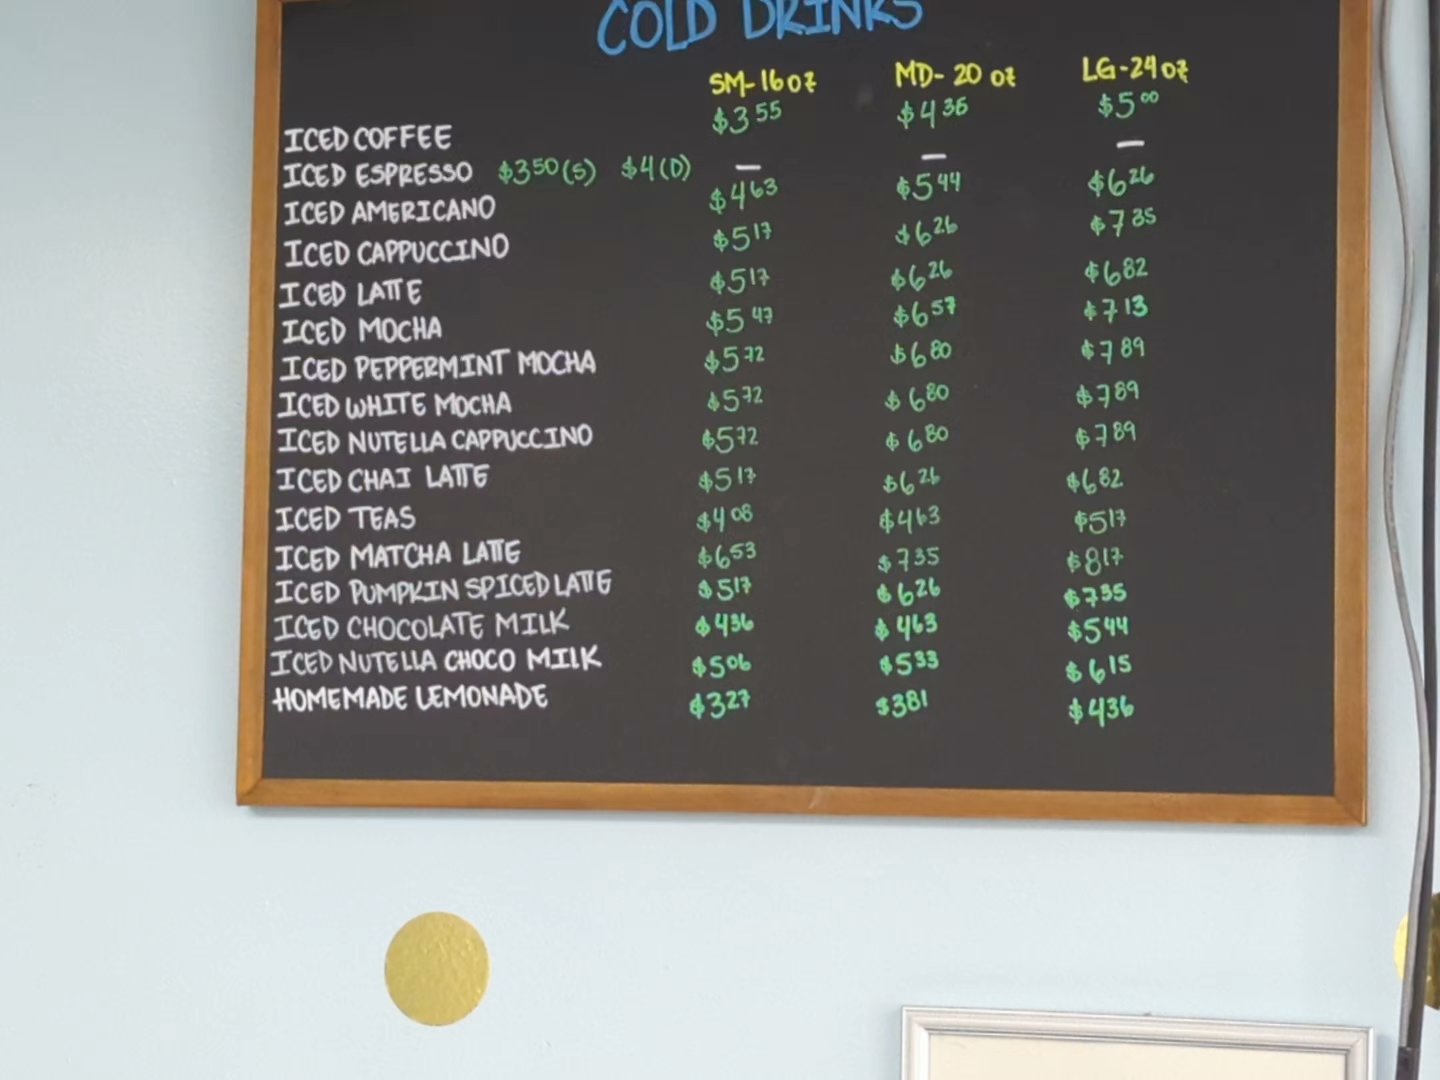 COLD DRINKS
SM-16oz MD-20 oz LG-24oz
ICED COFFEE $3.55 $4.36 $5.00
ICED ESPRESSO $3.50(S) $4(D) — — —
ICED AMERICANO $4.63 $5.44 $6.26
ICED CAPPUCCINO $5.17 $6.26 $7.35
ICED LATTE $5.17 $6.26 $6.82
ICED MOCHA $5.47 $6.57 $7.13
ICED PEPPERMINT MOCHA $5.72 $6.80 $7.89
ICED WHITE MOCHA $5.72 $6.80 $7.89
ICED NUTELLA CAPPUCCINO $5.72 $6.80 $7.89
ICED CHAI LATTE $5.17 $6.26 $6.82
ICED TEAS $4.08 $4.63 $5.17
ICED MATCHA LATTE $6.53 $7.35 $8.17
ICED PUMPKIN SPICED LATTE $5.17 $6.26 $7.35
ICED CHOCOLATE MILK $4.36 $4.63 $5.44
ICED NUTELLA CHOCO MILK $5.06 $5.33 $6.15
HOMEMADE LEMONADE $3.27 $3.81 $4.36